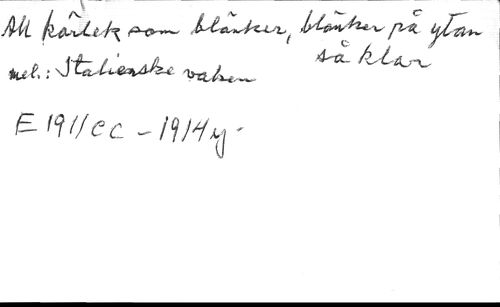 All kärlek som blänker, blänker på ytan
så klar
mel.: Italienske valsen
E 1911 CC - 1914 y.